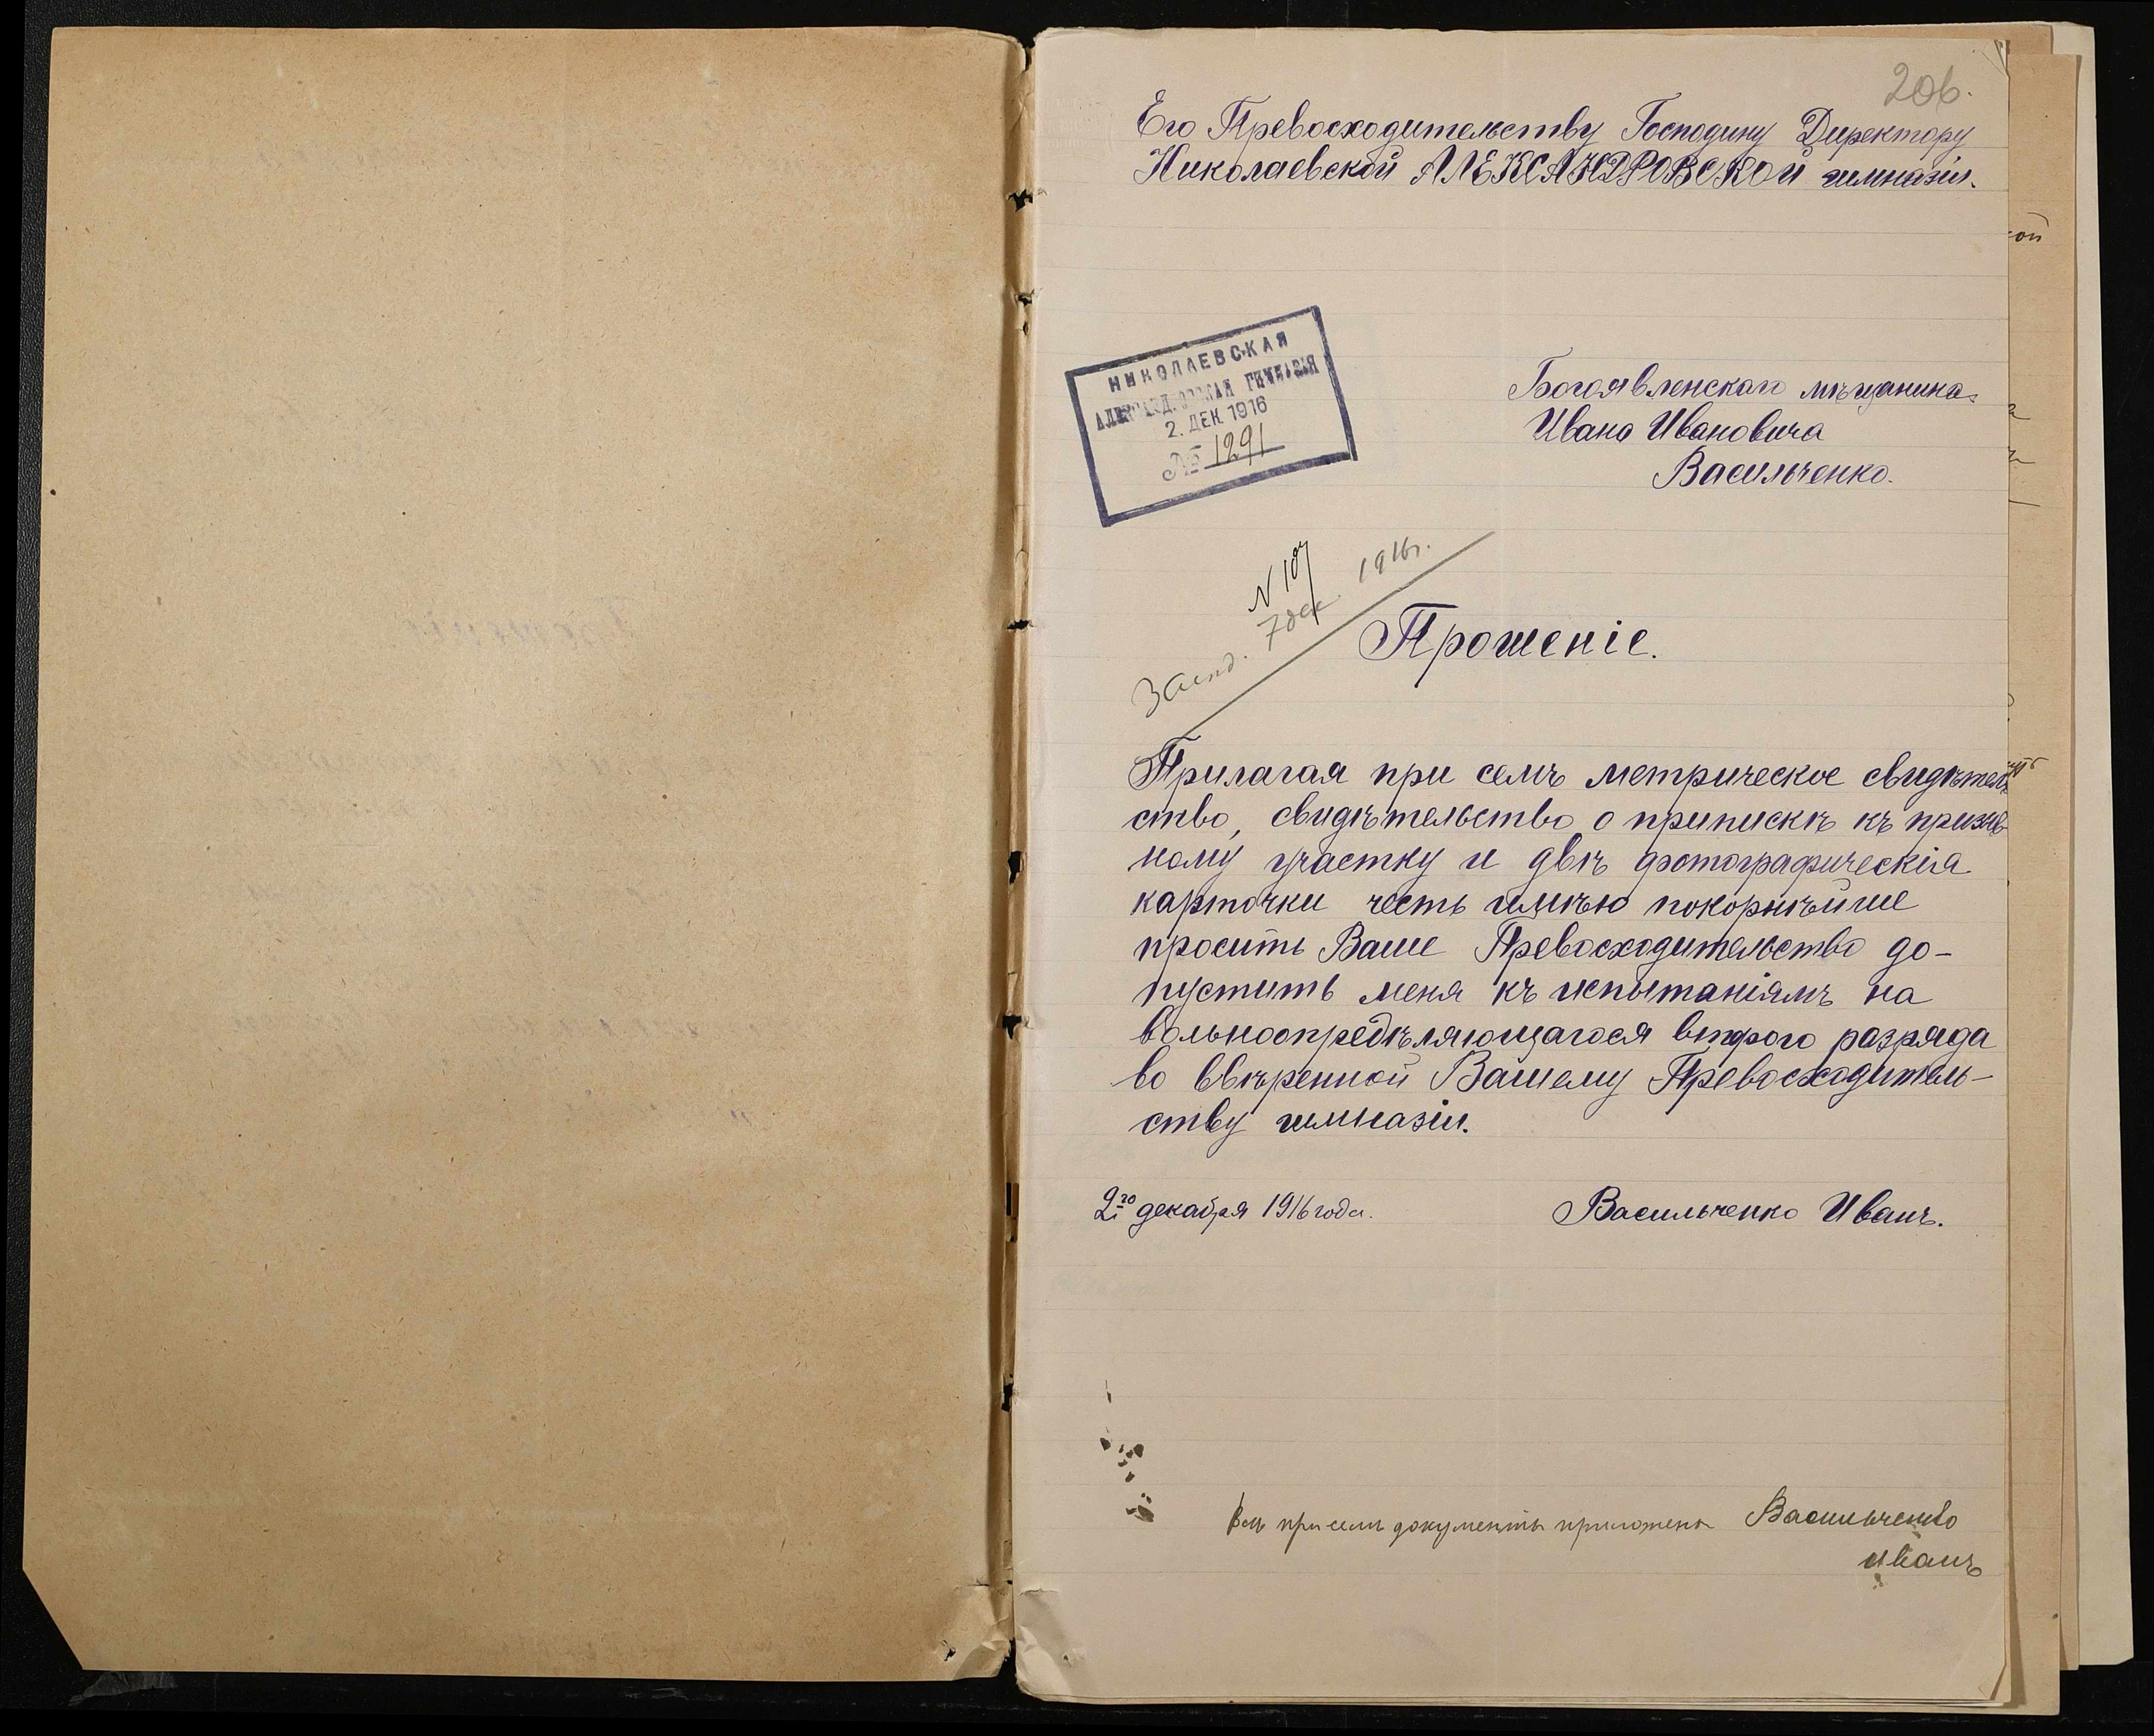 206.
Его Превосходительству Господину Директору
Николаевской АЛЕКСАНДРОВСКОЙ гимназіи.
НИКОЛАЕВСКАЯ
АЛЕКСАНДРОВСКАЯ ГИМНАЗІЯ
2. ДЕК. 1916
№ 1291
Богоявленскаго мѣщанина
Ивана Ивановича
Васильченко.
N 107
7 дек. 1916г.
Прошеніе.
Прилагая при семъ метрическое свидѣтель
ство, свидѣтельство о припискѣ къ призыв
ному участку и двѣ фотографическія
карточки честь имѣю покорнѣйше
просить Ваше Превосходительство до-
пустить меня къ испытаніямъ на
вольноопредѣляющагося второго разряда
во ввѣренной Вашему Превосходитель-
ству гимназіи.
2го декабря 1916 года.
Васильченко Иванъ.
при семъ документы приложены Васильченко
Иванъ